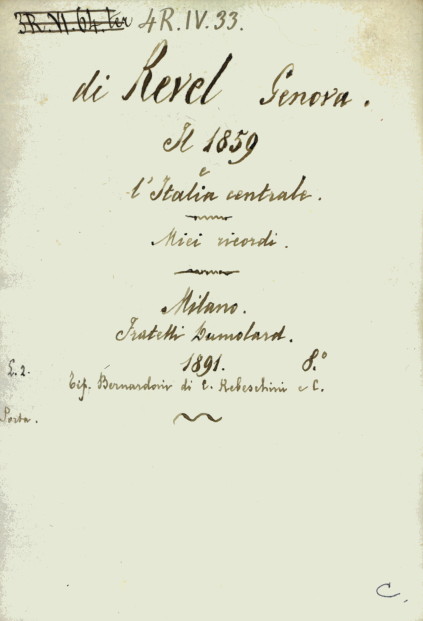 3R.VI.64.ter 4R.IV.33.
di Revel Genova.
Il 1859
e
l'Italia centrale.
Miei ricordi.
Milano.
Fratelli Dumolard.
1891. 8.°
L. 2.
Tip. Bernardoni di C. Rebeschini e C.
Porta.
C.